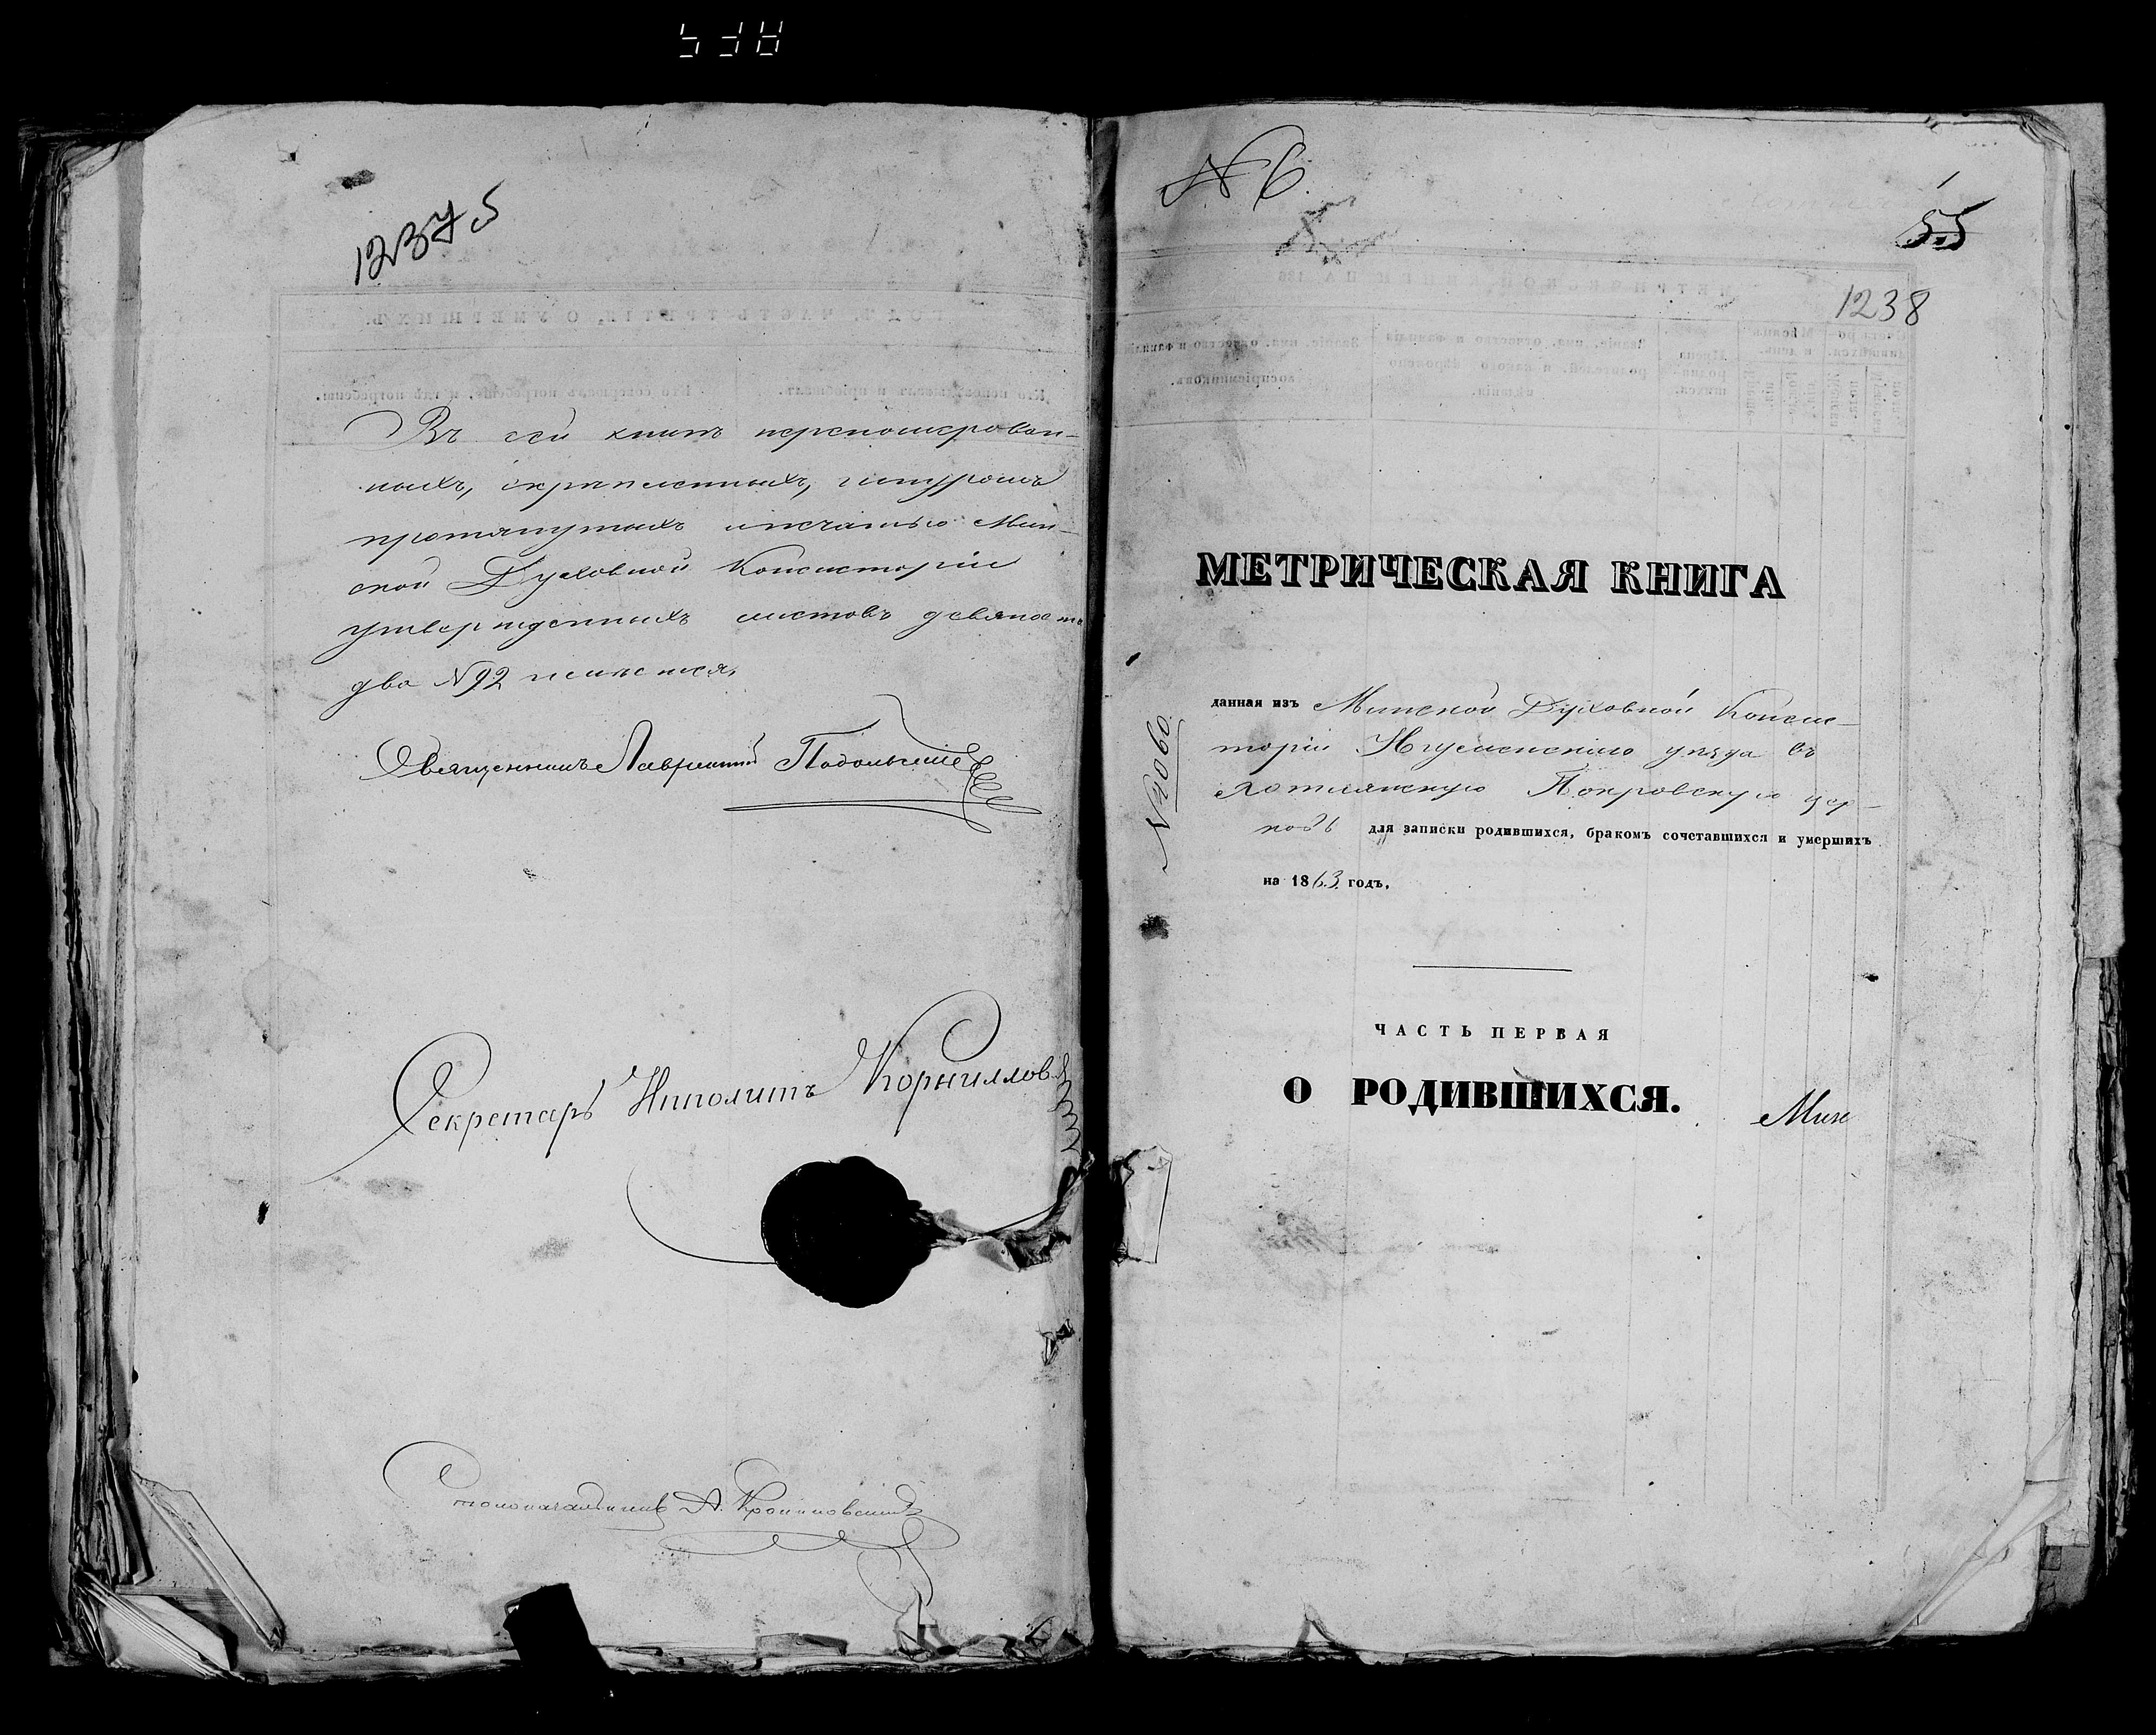 12375
Въ сей книгѣ перенумерован-
ныхъ, скрѣпленныхъ, шнуромъ
протянутыхъ и печатью Мин-
ской Духовной Консисторіи
утвержденныхъ листовъ девяносто
два N 92 имѣется.
Священникъ Лаврентій
Секретарь Иполитъ Корниловъ
Столоначальникъ А.
N 6
1
55
1238
МЕТРИЧЕСКАЯ КНИГА
данная изъ Минской Духовной Конси-
сторіи Игуменскаго уѣзда въ
Хотлянскую Покровскую цер-
ковь для записки родившихся, бракомъ сочетавшихся и умершихъ
на 1863 годъ.
N 2060
ЧАСТЬ ПЕРВАЯ
О РОДИВШИХСЯ.
Мин